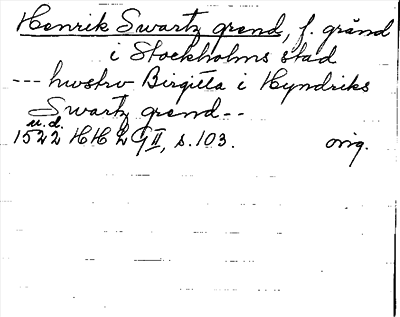 Henrik Swartz grend, f. gränd
i Stockholms stad
--- hwstrv Birgitta i Hyndriks
Swartz grend--
u.d.
1522 HH L G II, s. 103. orig.